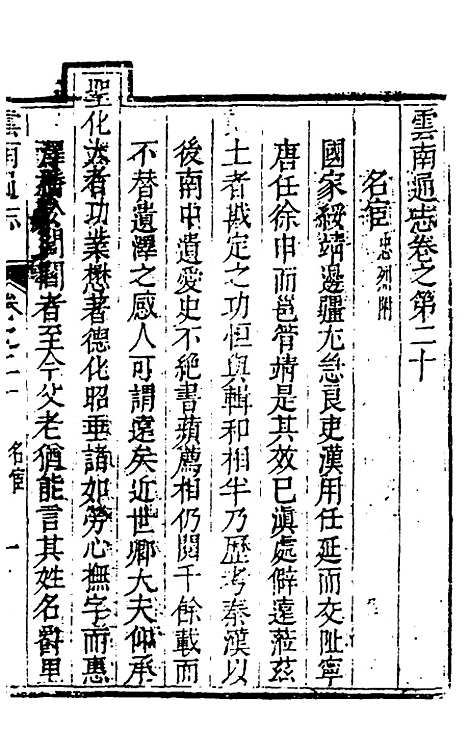 雲南通志卷之第二十
名宦忠烈附
國家綏靖邊疆尤急良吏漢用任延而交阯寧
唐任徐申而邕管靖是其效已滇處僻遠蒞茲
土者戡定之功恒與輯和相半乃歷考秦漢以
後南中遺愛史不絕書蘋薦相仍閱千餘載而
不替遺澤之感人可謂遠矣近世卿大夫仰承
聖化大者功業懋著德化昭垂諸如勞心撫字而惠
澤 於閭閻者至今父老猶能言其姓名爵里
雲南通志 卷之二十 名宦 一